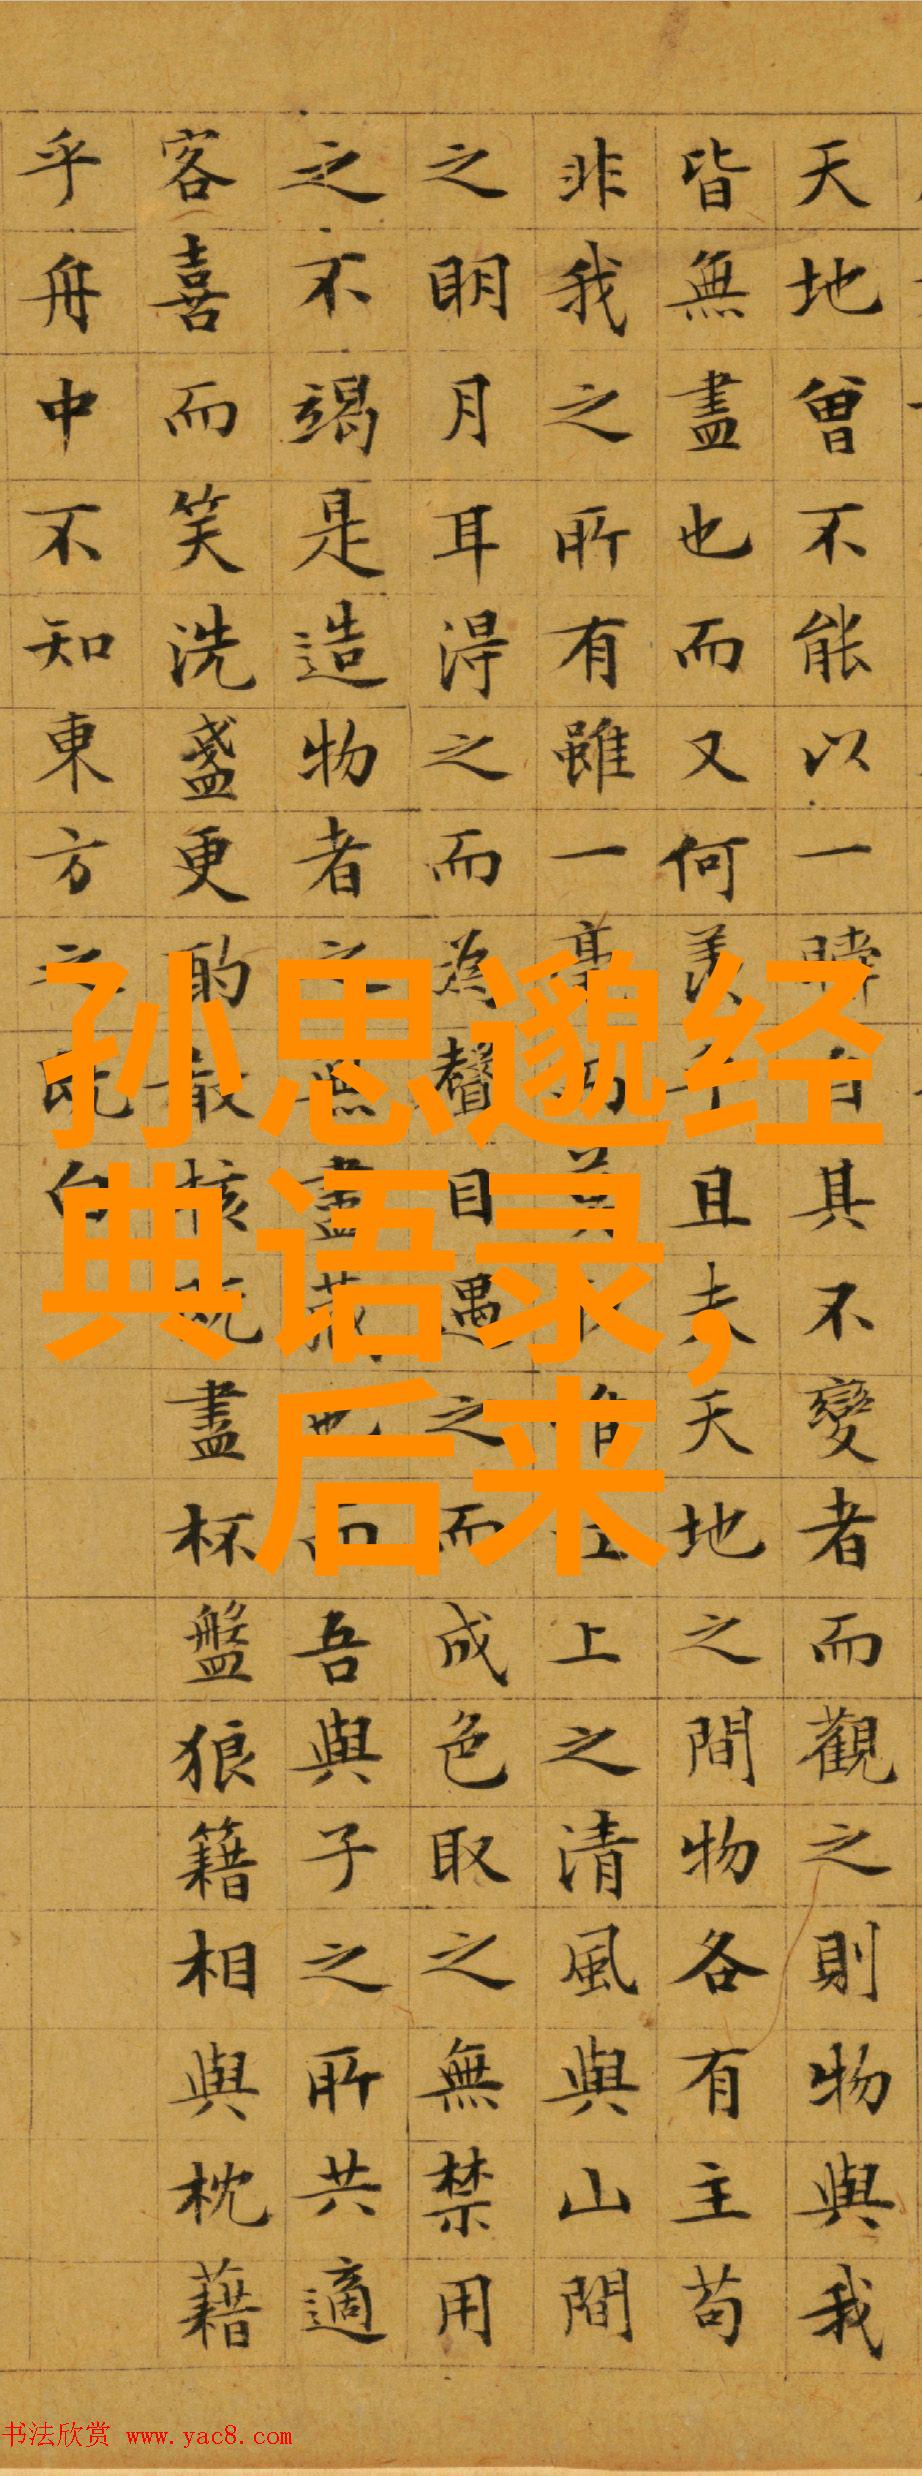 天地曾不能以一瞬自其不變者而觀之則物與我
皆無盡也而又何羨乎且夫天地之間物各有主苟
非我之所有雖一毫上之清風與山間
之明月耳得之而為聲目遇之而成色取之無禁用
之不竭是造物者之無盡藏也而吾與子之所共適
客喜而笑洗盞更酌殽核既盡杯盤狼籍相與枕藉
乎舟中不知東方之既白
孙思邈经
典语录,
后来
书法欣赏 www.yac8.com